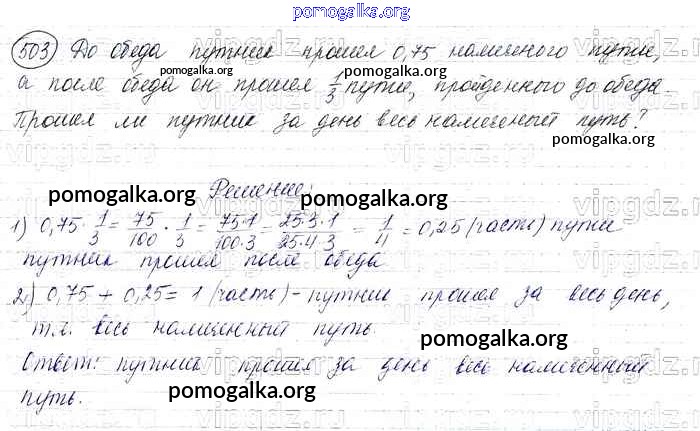 pomogalka.org
503) До обеда путник прошел 0,75 намеченного пути,
pomogalka.org pomogalka.org
а после обеда он прошел 1/3 пути, пройденного до обеда.
Прошел ли путник за день весь намеченный путь?
pomogalka.org
Решение:
pomogalka.org pomogalka.org
1) 0,75 · 1/3 = 75/100 · 1/3 = 75·1/100·3 = 25·3·1/25·4·3 = 1/4 = 0,25 (часть) пути
путник прошел после обеда
2) 0,75 + 0,25 = 1 (часть) - путник прошел за весь день,
т.е. весь намеченный путь
pomogalka.org
Ответ: путник прошел за день весь намеченный
pomogalka.org
путь.